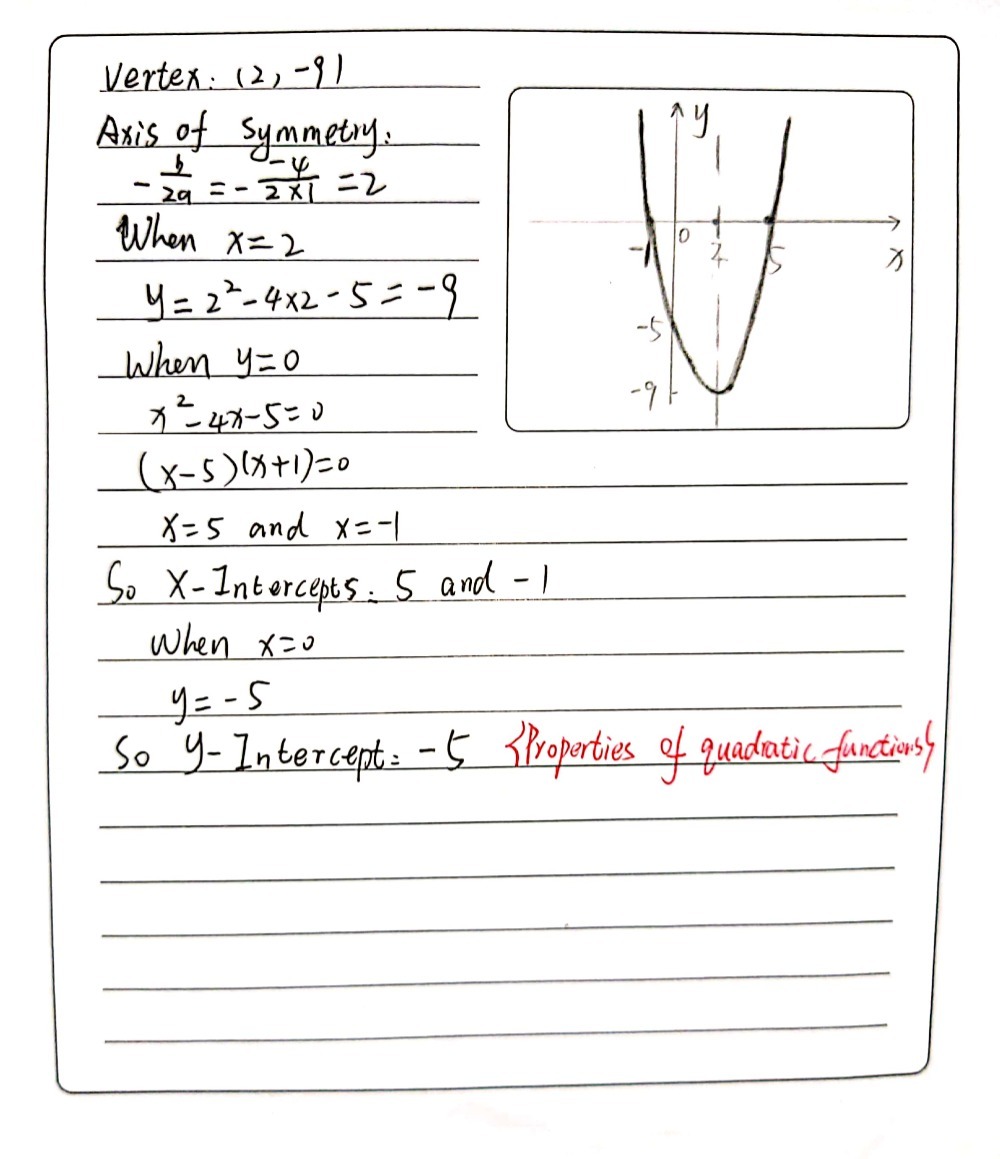 Vertex: (2, -9)
Axis of Symmetry:
-b/2a = - -4/2×1 = 2
When x=2
y = 2² - 4×2 - 5 = -9
When y=0
x² - 4x - 5 = 0
(x-5)(x+1)=0
x=5 and x=-1
So X-Intercepts: 5 and -1
When x=0
y = -5
So y-Intercept: -5 {Properties of quadratic functions}
y
-1 0 2 5 x
-5
-9